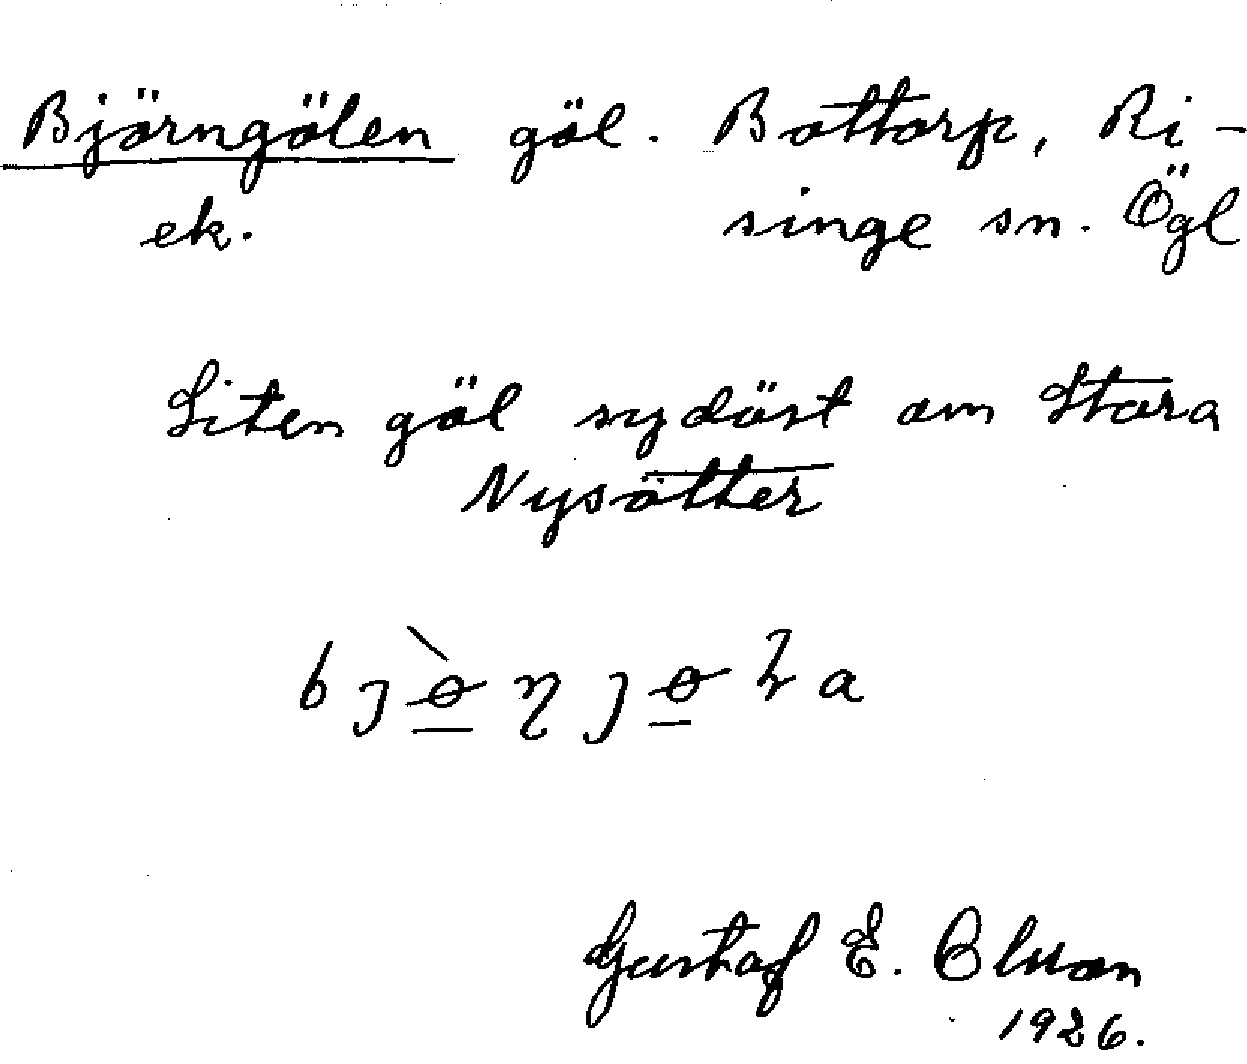 Björngölen göl. Bottorp, Ri-
ek. singe sn. Ögl
Liten göl sydöst om Stora
Nysätter
Gustaf E. Olsson
1926.